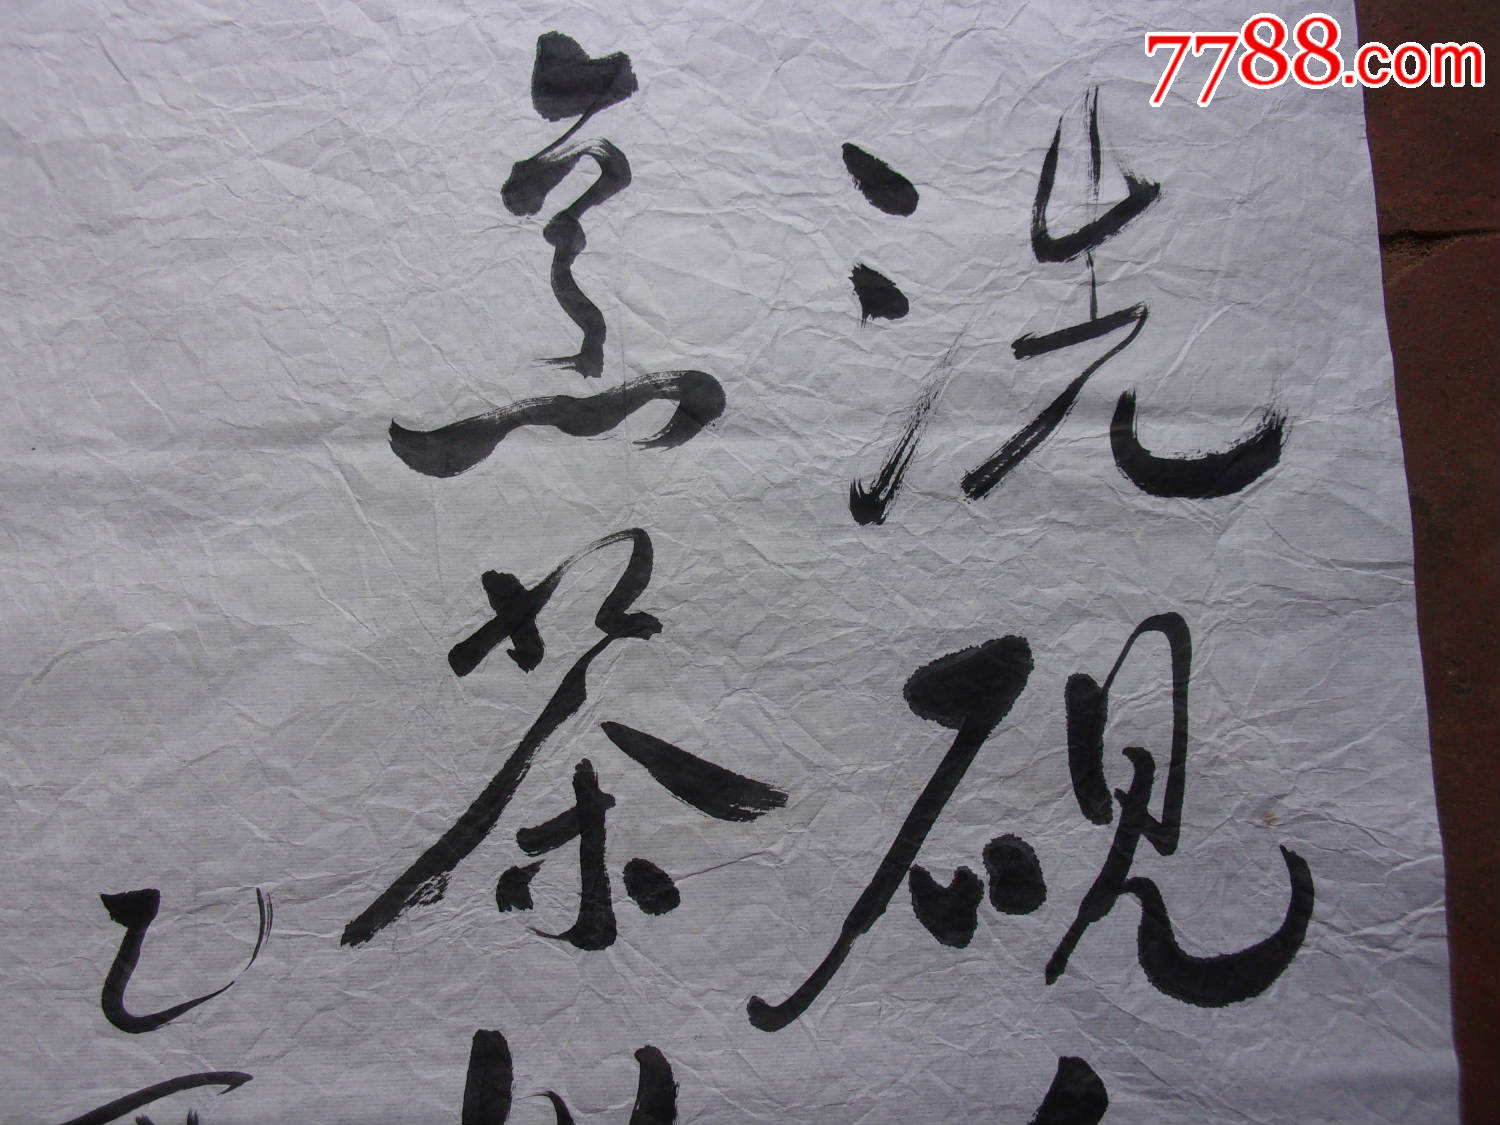 7788.com
洗砚
烹茶
乙